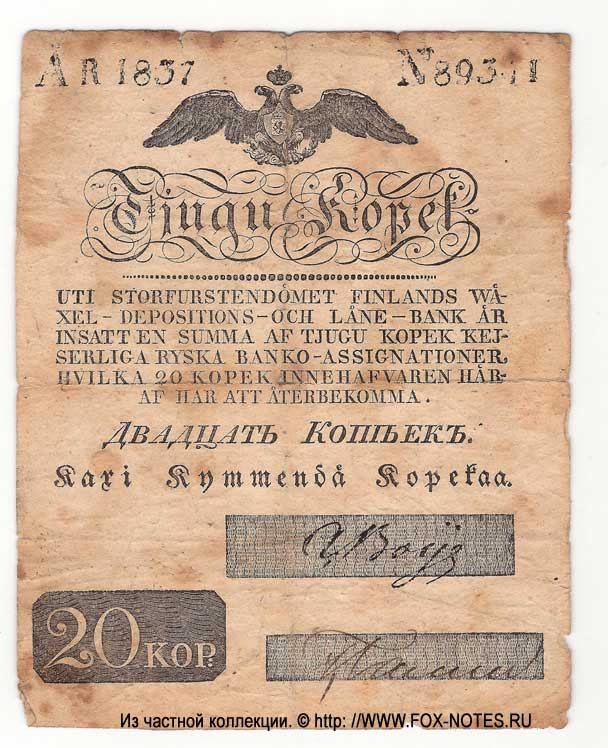 ÅR 1837 No 89311
Tjugu Kopek
UTI STORFURSTENDÖMET FINLANDS WÄ-
XEL-DEPOSITIONS-OCH LÅNE-BANK ÄR
INSATT EN SUMMA AF TJUGU KOPEK KEJ-
SERLIGA RYSKA BANKO-ASSIGNATIONER,
HVILKA 20 KOPEK INNEHAFVAREN HÄR-
AF HAR ATT ÅTERBEKOMMA.
ДВАДЦАТЬ КОПѢЕКЪ.
Kaxi Kymmendå Kopekaa.
20 KOP.
Из частной коллекции. © http: //WWW.FOX-NOTES.RU